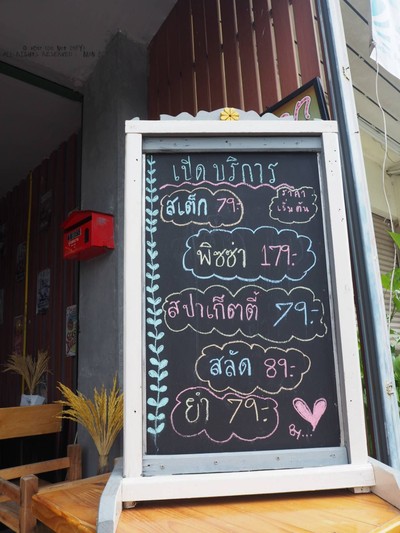 เปิดบริการ
สเต็ก 79.-
ราคา
เริ่มต้น
พิซซ่า 179.-
สปาเก็ตตี้ 79.-
สลัด 89.-
ยำ 79.-
By...